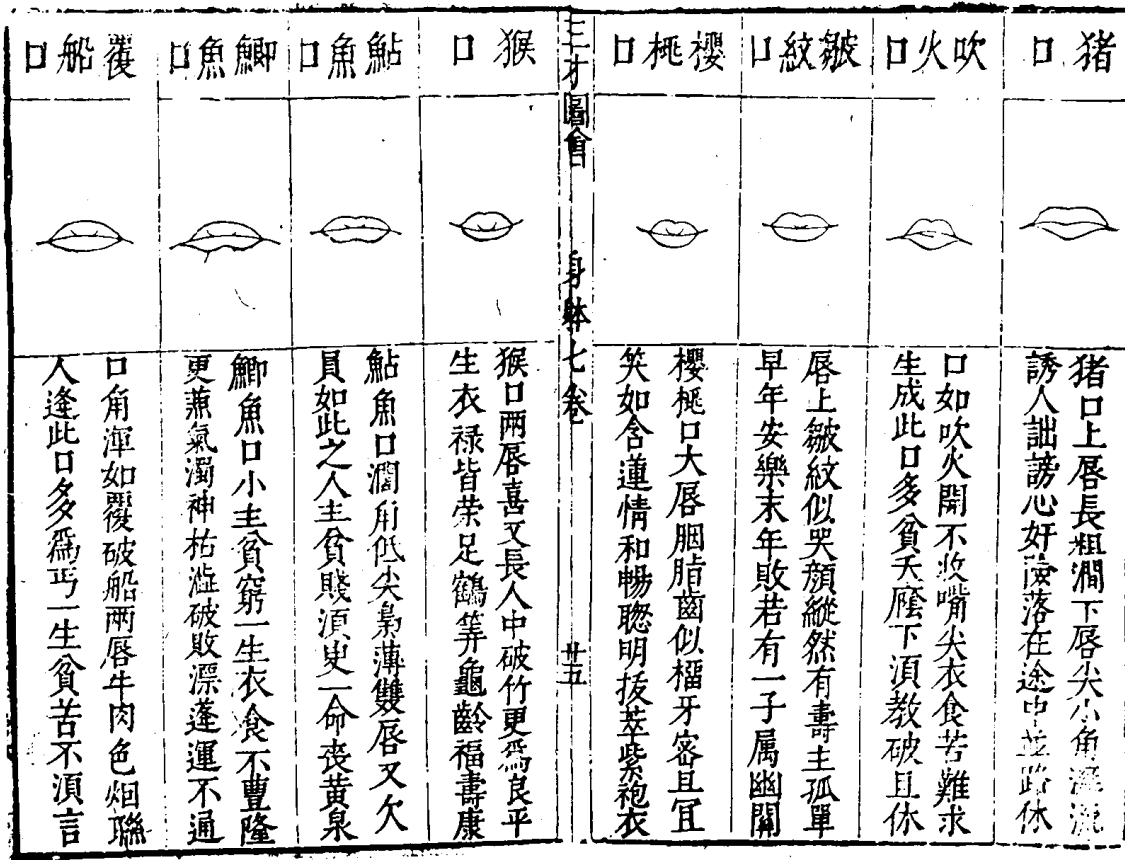 猪口
猪口上唇長粗濶下唇尖小角涎流
誘人訕謗心奸險落在途中並路休
吹火口
口如吹火開不收嘴尖衣食苦難求
生成此口多貧夭廕下湏教破且休
皺紋口
唇上皺紋似哭顏縱然有壽主孤單
早年安樂末年敗若有一子属幽關
櫻桃口
櫻桃口大唇胭脂齒似榴牙密且宜
笑如含蓮情和暢聰明拔萃紫袍衣
三才圖會
身體七卷
廿五
猴口
猴口兩唇喜又長人中破竹更爲良平
生衣禄皆荣足鶴筭龜齡福壽康
鮎魚口
鮎魚口濶角低尖梟薄雙唇又欠
員如此之人主貧賤湏臾一命丧黃泉
鯽魚口
鯽魚口小主貧窮一生衣飡不豐隆
更兼氣濁神枯澁破敗漂蓬運不通
覆船口
口角渾如覆破船兩唇牛肉色烟聯
人逢此口多爲丐一生貧苦不湏言